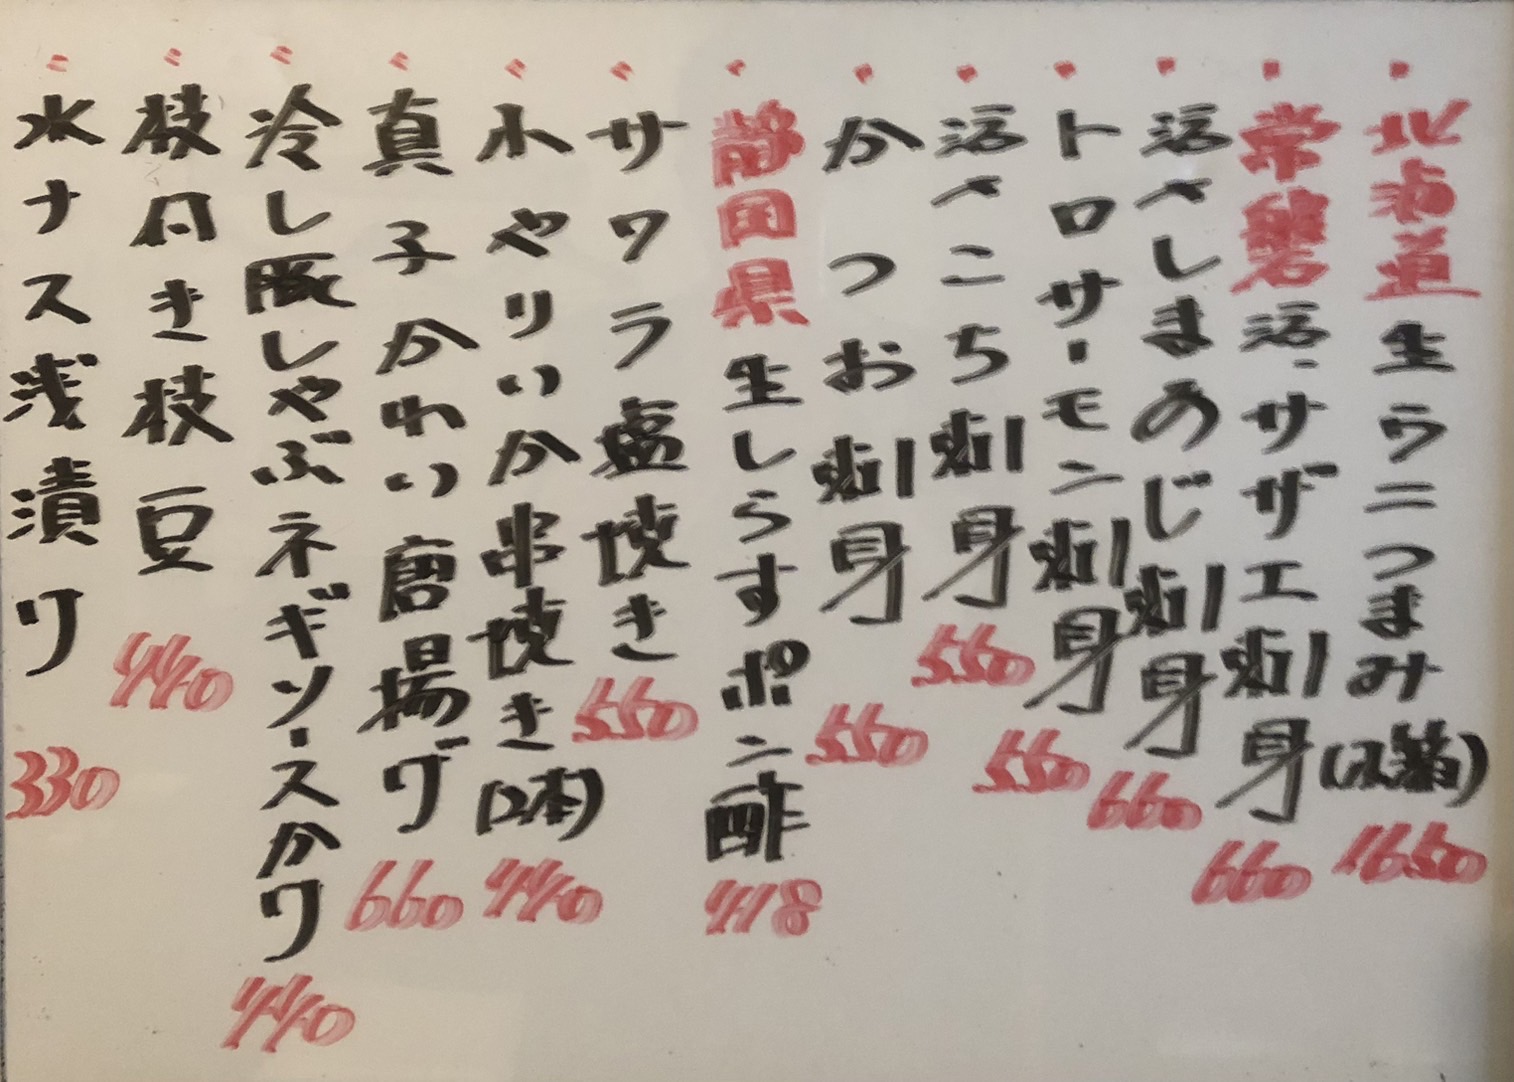 ・北海道生ウニつまみ 1650
・常磐活サザエ刺身 660
・活〆しまあじ刺身 660
・トロサーモン刺身 550
・活〆こち刺身 550
・かつお刺身 550
・静岡県生しらすポン酢 418
・サワラ塩焼き 550
・小やりいか串焼き(2本) 440
・真子かれい唐揚げ 660
・冷し豚しゃぶネギソースかけ 440
・枝付き枝豆 440
・水ナス浅漬け 330